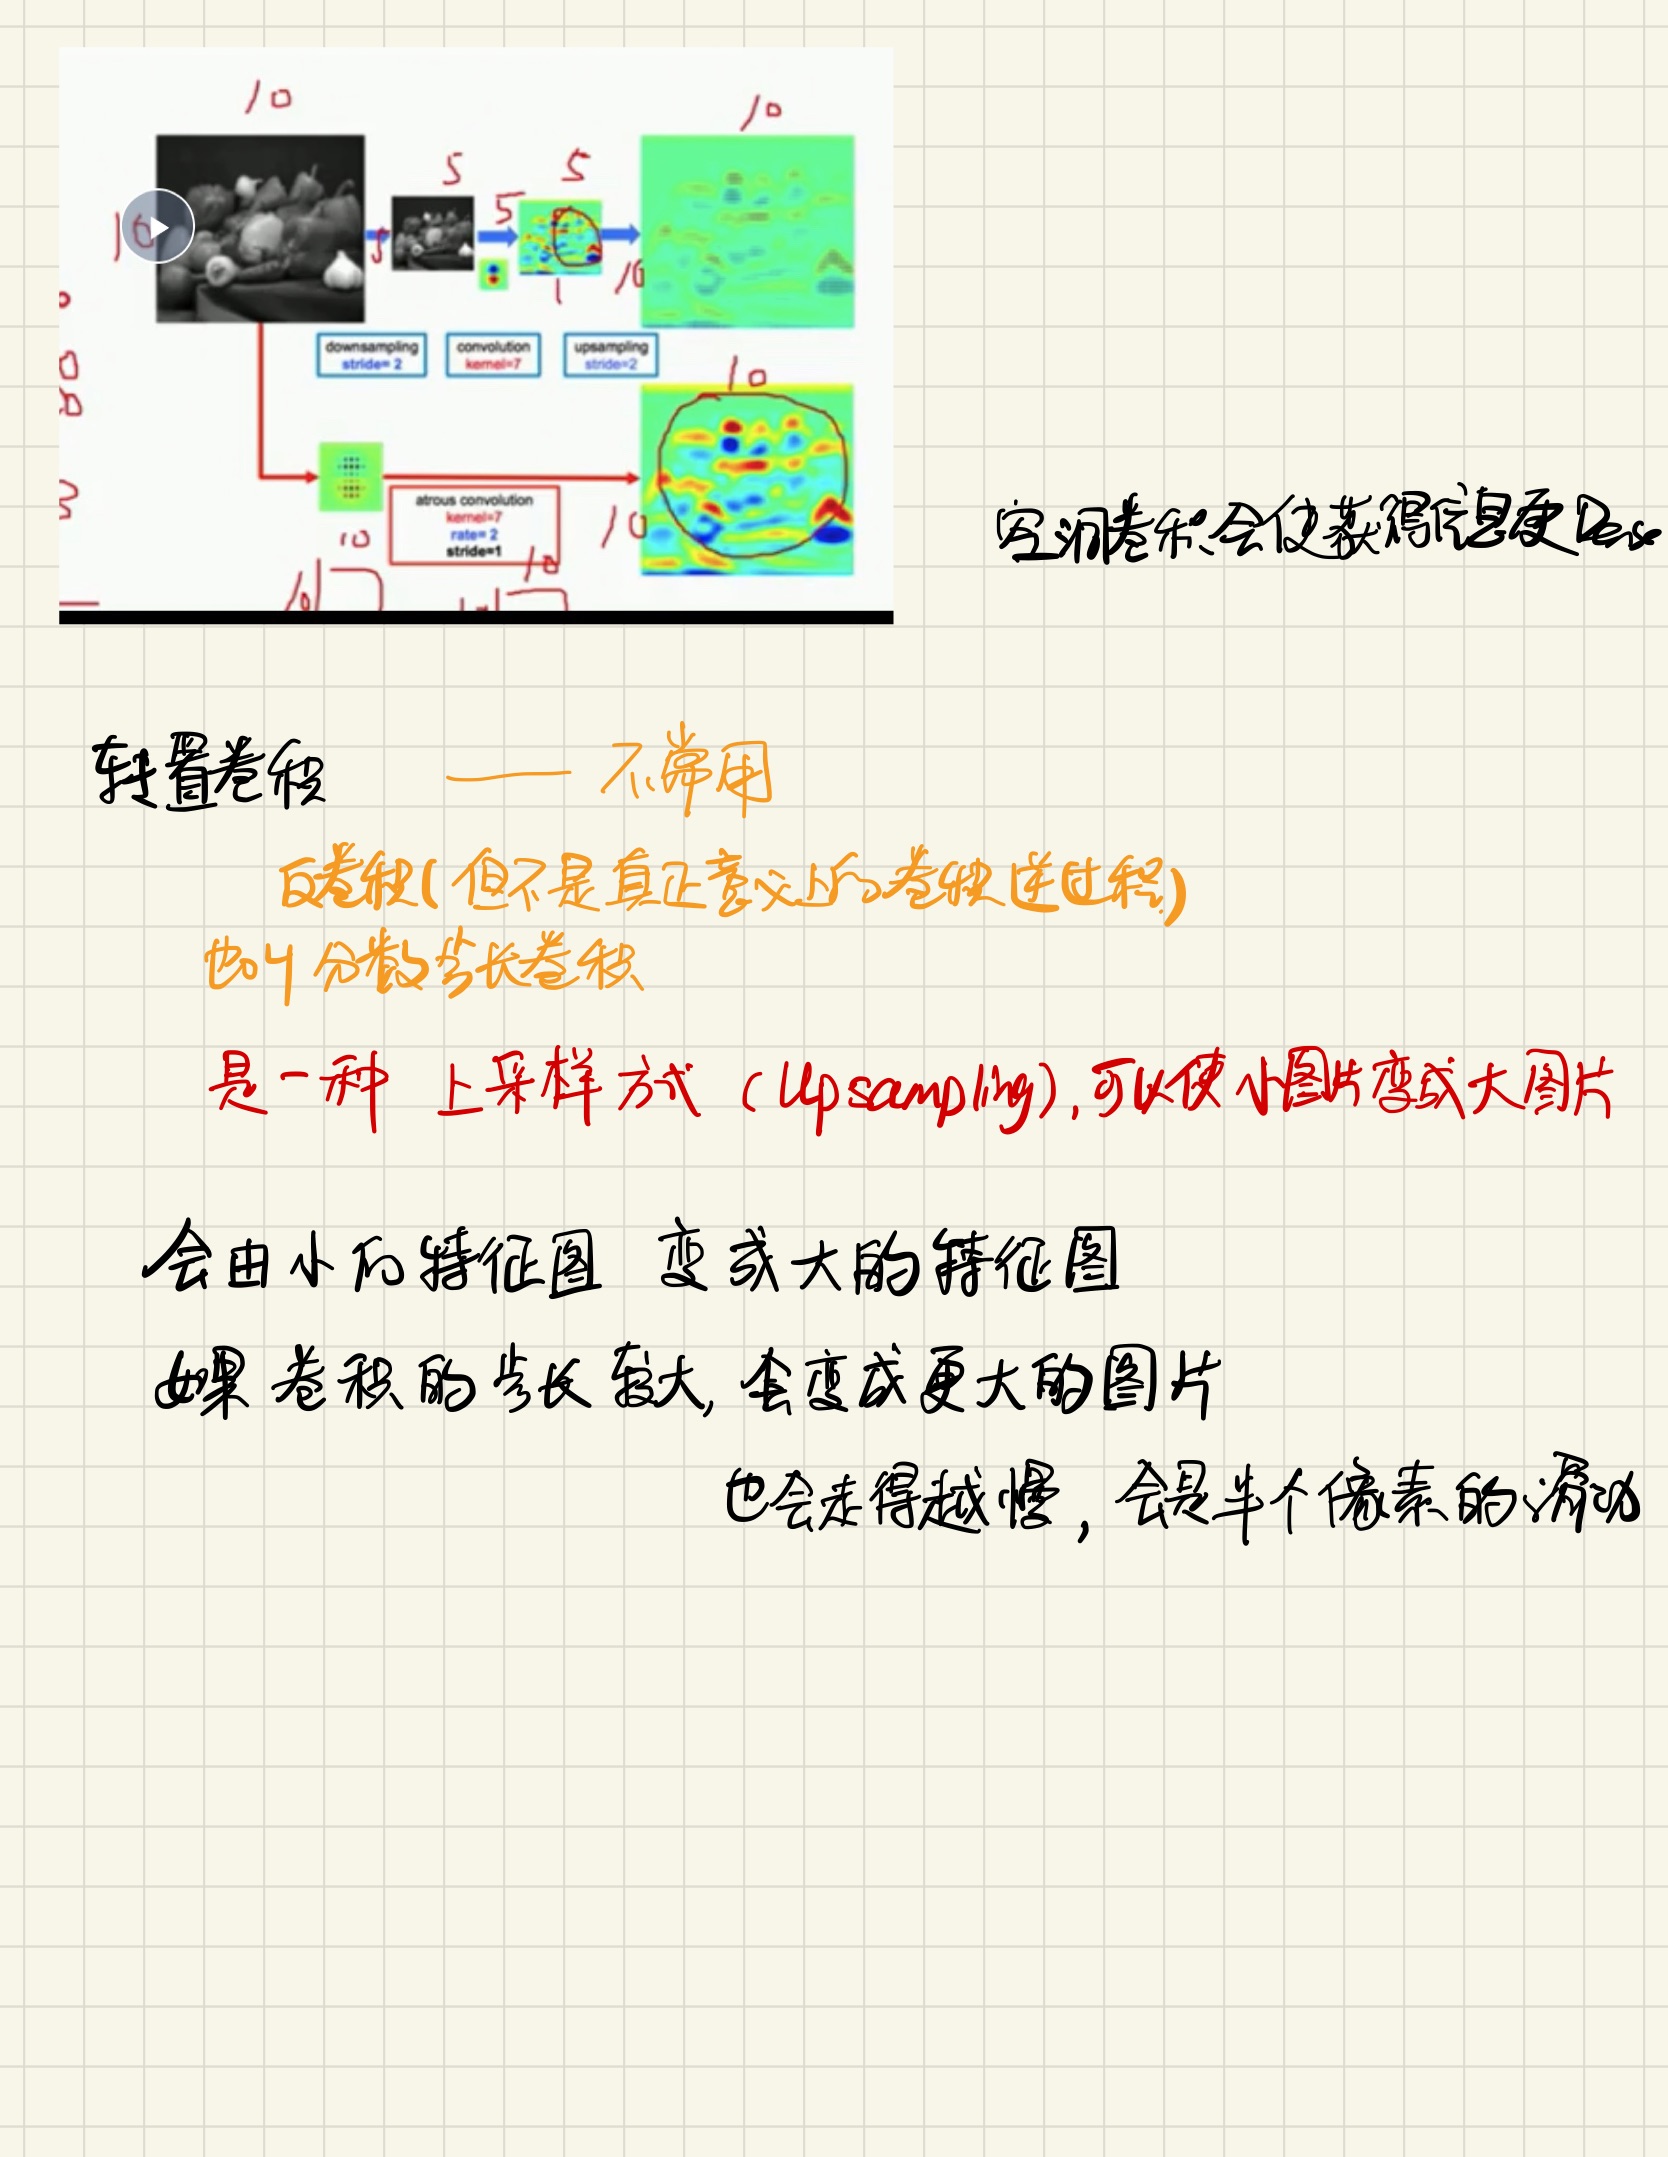 10
10
5
5
10
5
5
10
1
downsampling
stride= 2
convolution
kernel=7
upsampling
stride=2
10
atrous convolution
kernel=7
rate= 2
stride=1
10
10
10
10
空洞卷积会使获得信息更Dense
转置卷积 —— 不常用
反卷积(但不是真正意义上的卷积逆过程)
也叫分数步长卷积
是一种 上采样方式 (Upsampling),可以使小图片变成大图片
会由小的特征图 变成大的特征图
如果卷积的步长较大,会变成更大的图片
也会走得越慢,会是半个像素的滑动